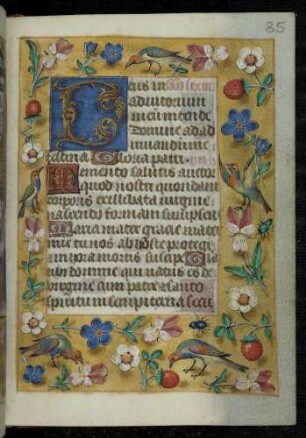 85
eus in
adiutorium
meum intende
Domine ad ad
iuuandum me
festina Gloria patri
Memento salutis auctor
quod nostri quondam
corporis ex illibata uirgine
nascendo formam sumpseris
Maria mater gratie mater
mie tu nos ab hoste protege
in hora mortis suscipe Gloria
tibi domine qui natus es de
uirgine cum patre et sancto
spiritu in sempiterna secula